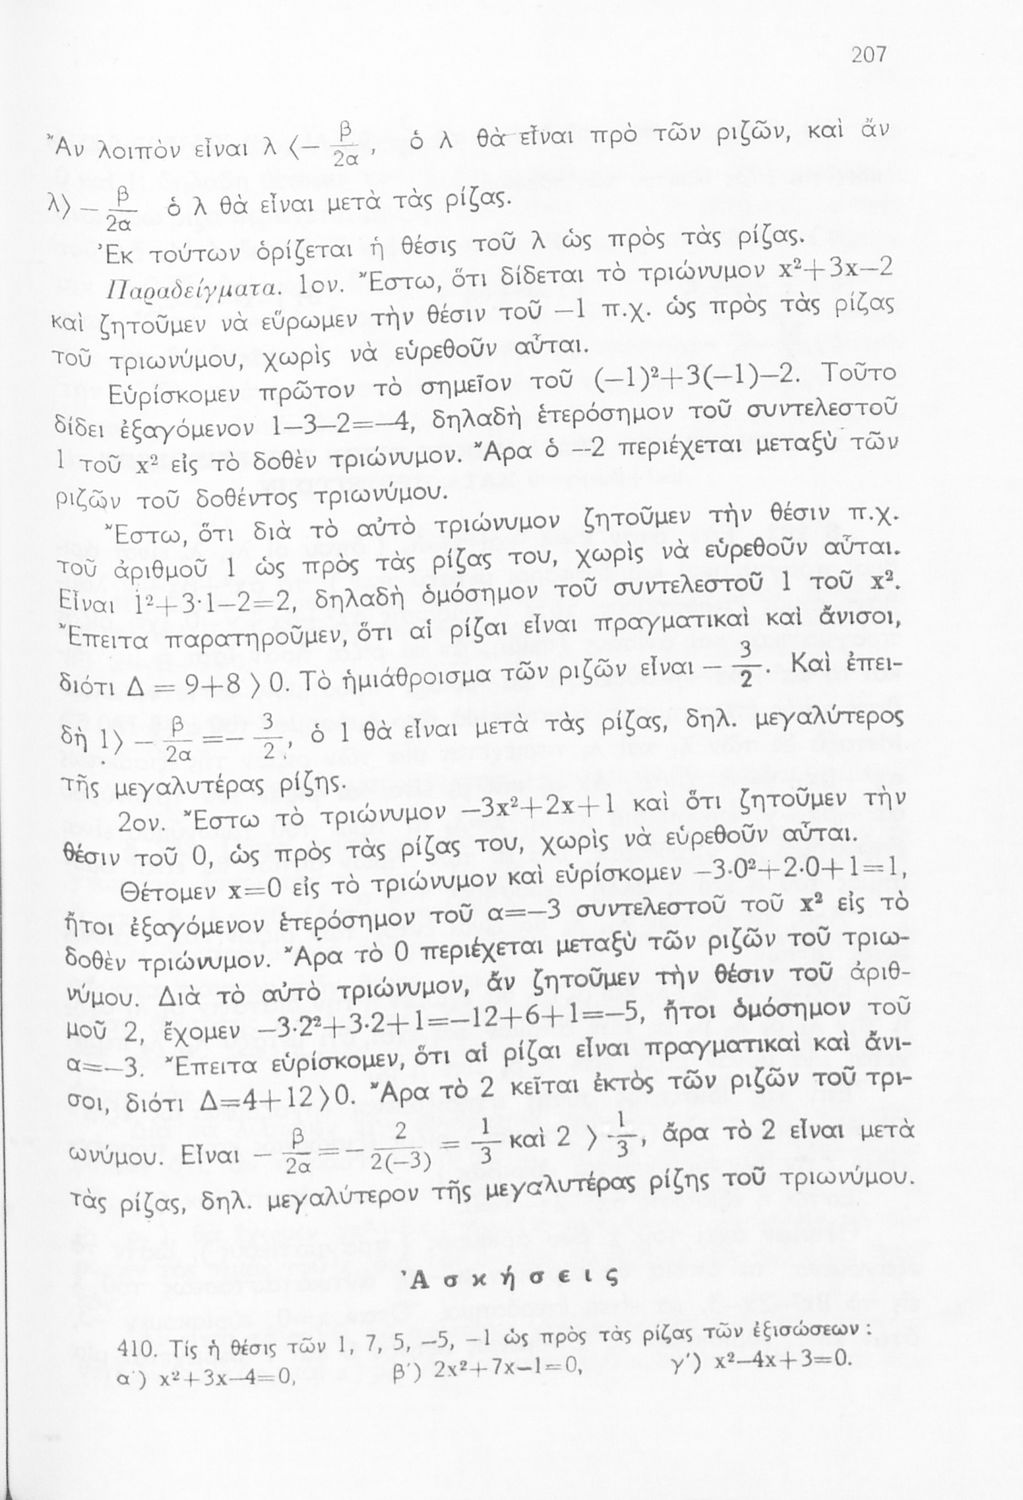 207
Ἂν λοιπὸν εἶναι λ ⟨— β/2α , ὁ λ θὰ εἶναι πρὸ τῶν ριζῶν, καὶ ἄν
λ⟩ — β/2α ὁ λ θὰ εἶναι μετὰ τὰς ρίζας.
Ἐκ τούτων ὁρίζεται ἡ θέσις τοῦ λ ὡς πρὸς τὰς ρίζας.
Παραδείγματα. 1ον. Ἔστω, ὅτι δίδεται τὸ τριώνυμον x²+3x—2
καὶ ζητοῦμεν νὰ εὕρωμεν τὴν θέσιν τοῦ —1 π.χ. ὡς πρὸς τὰς ρίζας
τοῦ τριωνύμου, χωρὶς νὰ εὑρεθοῦν αὗται.
Εὑρίσκομεν πρῶτον τὸ σημεῖον τοῦ (—1)²+3(—1)—2. Τοῦτο
δίδει ἐξαγόμενον 1—3—2=—4, δηλαδὴ ἑτερόσημον τοῦ συντελεστοῦ
1 τοῦ x² εἰς τὸ δοθὲν τριώνυμον. Ἄρα ὁ —2 περιέχεται μεταξὺ τῶν
ριζῶν τοῦ δοθέντος τριωνύμου.
Ἔστω, ὅτι διὰ τὸ αὐτὸ τριώνυμον ζητοῦμεν τὴν θέσιν π.χ.
τοῦ ἀριθμοῦ 1 ὡς πρὸς τὰς ρίζας του, χωρὶς νὰ εὑρεθοῦν αὗται.
Εἶναι 1²+3·1—2=2, δηλαδὴ ὁμόσημον τοῦ συντελεστοῦ 1 τοῦ x².
Ἔπειτα παρατηροῦμεν, ὅτι αἱ ρίζαι εἶναι πραγματικαὶ καὶ ἄνισοι,
διότι Δ = 9+8 ⟩ 0. Τὸ ἡμιάθροισμα τῶν ριζῶν εἶναι — 3/2. Καὶ ἐπει-
δὴ 1⟩ — β/2α =— 3/2, ὁ 1 θὰ εἶναι μετὰ τὰς ρίζας, δηλ. μεγαλύτερος
τῆς μεγαλυτέρας ρίζης.
2ον. Ἔστω τὸ τριώνυμον —3x²+2x+1 καὶ ὅτι ζητοῦμεν τὴν
θέσιν τοῦ 0, ὡς πρὸς τὰς ρίζας του, χωρὶς νὰ εὑρεθοῦν αὗται.
Θέτομεν x=0 εἰς τὸ τριώνυμον καὶ εὑρίσκομεν —3·0²+2·0+1=1,
ἤτοι ἐξαγόμενον ἑτερόσημον τοῦ α=—3 συντελεστοῦ τοῦ x² εἰς τὸ
δοθὲν τριώνυμον. Ἄρα τὸ 0 περιέχεται μεταξὺ τῶν ριζῶν τοῦ τριω-
νύμου. Διὰ τὸ αὐτὸ τριώνυμον, ἄν ζητοῦμεν τὴν θέσιν τοῦ ἀριθ-
μοῦ 2, ἔχομεν —3·2²+3·2+1=—12+6+1=—5, ἤτοι ὁμόσημον τοῦ
α=—3. Ἔπειτα εὑρίσκομεν, ὅτι αἱ ρίζαι εἶναι πραγματικαὶ καὶ ἄνι-
σοι, διότι Δ=4+12⟩0. Ἄρα τὸ 2 κεῖται ἐκτὸς τῶν ριζῶν τοῦ τρι-
ωνύμου. Εἶναι — β/2α =— 2/2(—3) = 1/3 καὶ 2 ⟩ 1/3, ἄρα τὸ 2 εἶναι μετὰ
τὰς ρίζας, δηλ. μεγαλύτερον τῆς μεγαλυτέρας ρίζης τοῦ τριωνύμου.
Ἀσκήσεις
410. Τίς ἡ θέσις τῶν 1, 7, 5, —5, —1 ὡς πρὸς τὰς ρίζας τῶν ἐξισώσεων :
α΄) x²+3x—4=0, β΄) 2x²+7x—1=0, γ΄) x²—4x+3=0.